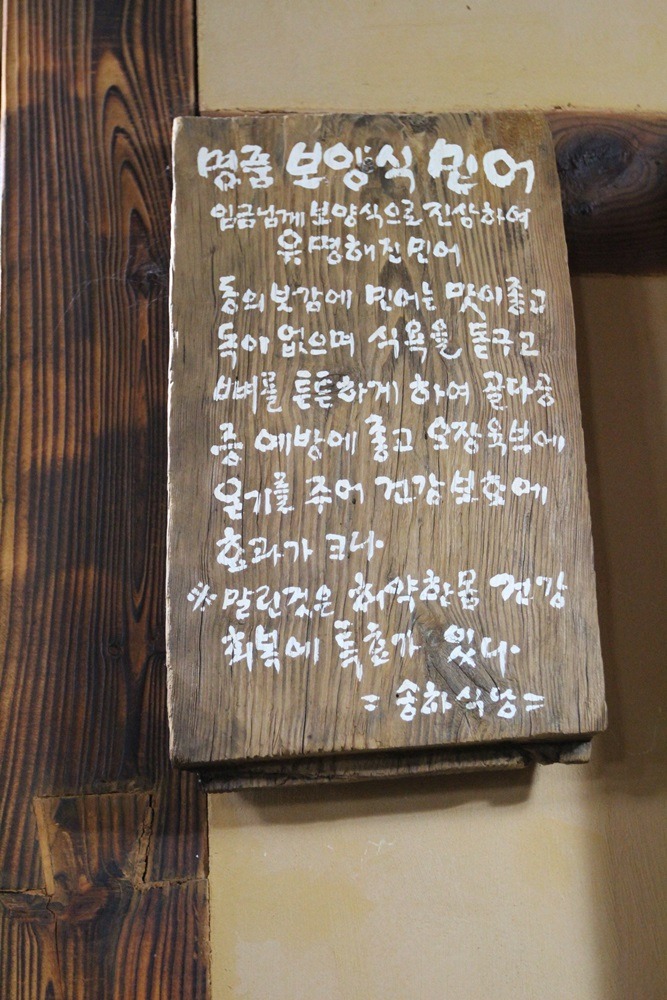 명품 보양식 민어
임금님께 보양식으로 진상하여
유명해진 민어
동의보감에 민어는 맛이좋고
독이 없으며 식욕을 돋구고
뼈를 튼튼하게 하여 골다공
증 예방에 좋고 오장육부에
온기를 주어 건강보호에
효과가 크다.
※ 말린것은 허약한몸 건강
회복에 특효가 있다.
= 송하식당 =